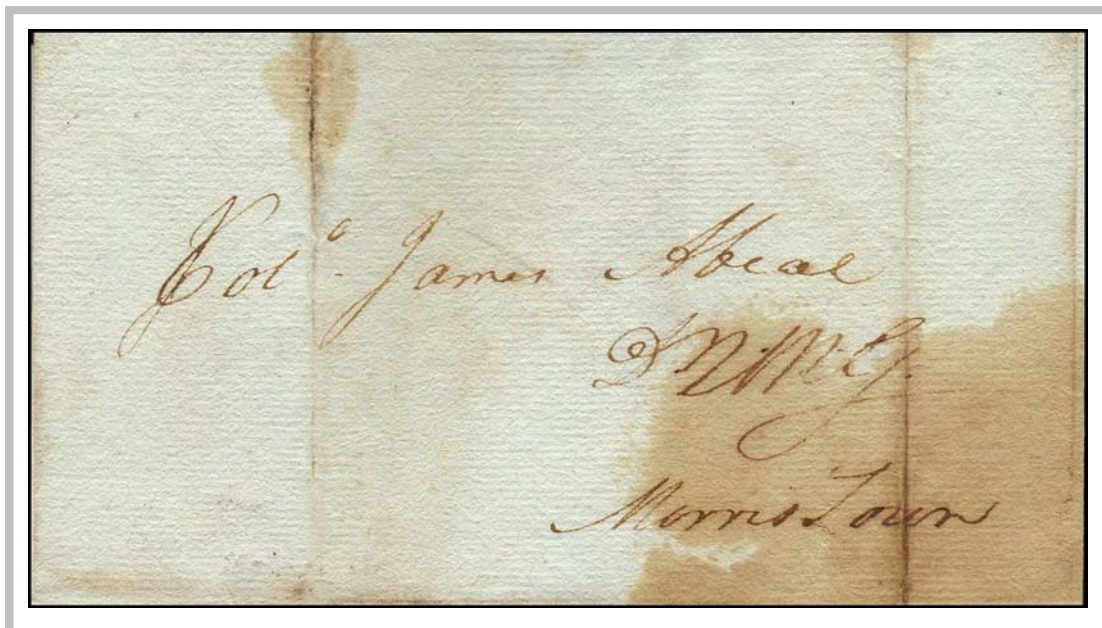 Colo. James Abeal
D.Q.M.G.
Morris Town